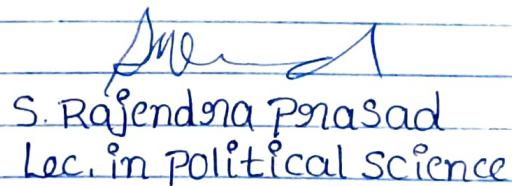 S. Rajendra Prasad
Lec. in political science